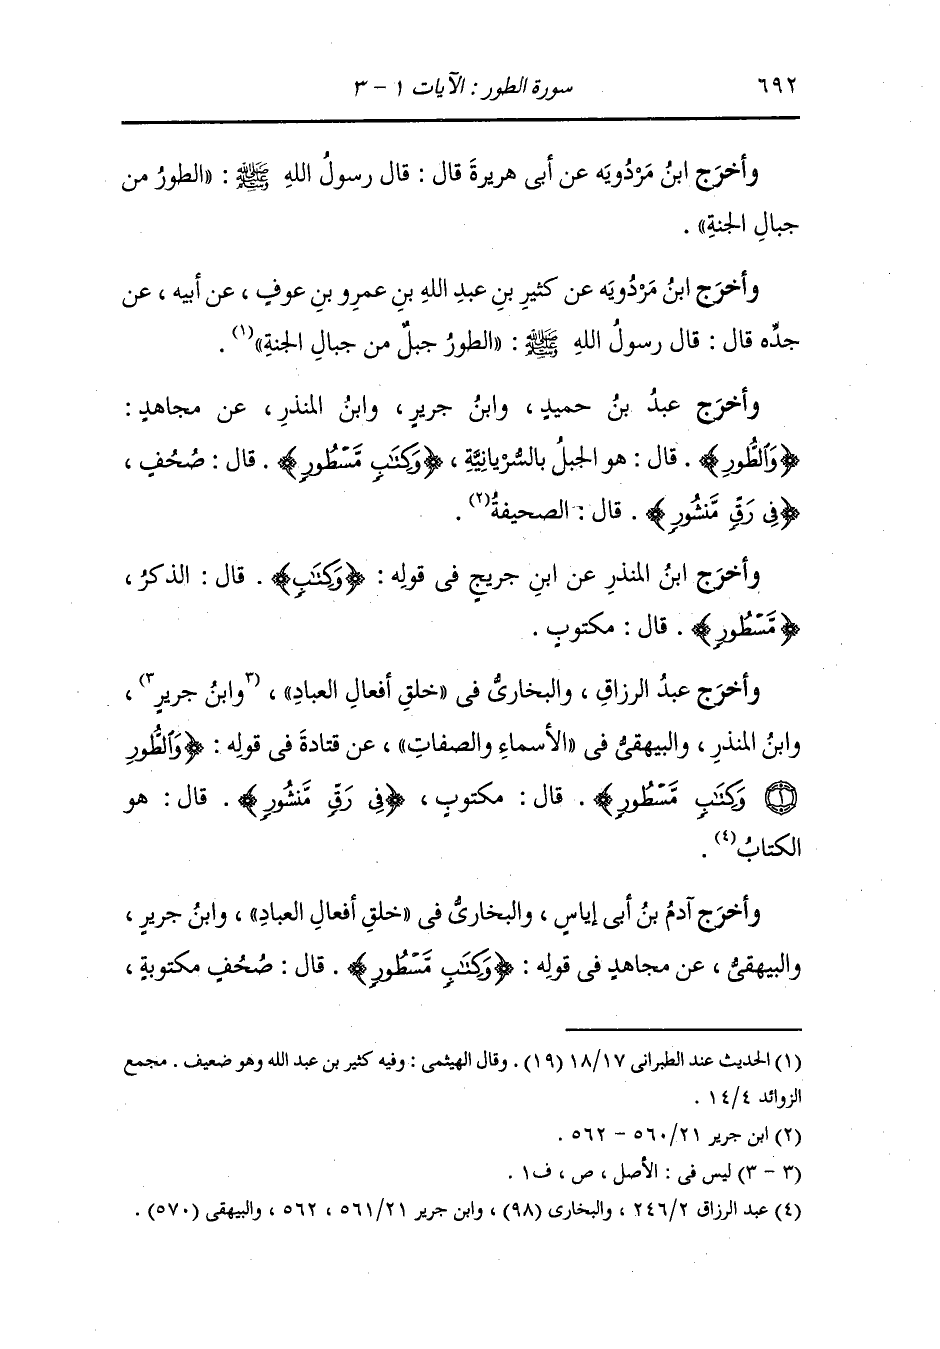 ٦٩٢ سورة الطور : الآيات ١ - ٣
وأخرَج ابنُ مَرْدُويَه عن أبى هريرةَ قال : قال رسولُ اللهِ ﷺ : «الطورُ من
جبالِ الجنةِ» .
وأخرَج ابنُ مَرْدُويَه عن كثيرِ بنِ عبدِ اللهِ بنِ عمرِو بنِ عوفٍ ، عن أبيه ، عن
جدِّه قال : قال رسولُ اللهِ ﷺ : «الطورُ جبلٌ من جبالِ الجنةِ»(١) .
وأخرَج عبدُ بنُ حميدٍ ، وابنُ جريرٍ ، وابنُ المنذرِ ، عن مجاهدٍ :
﴿وَٱلطُّورِ﴾ . قال : هو الجبلُ بالسُّرْيانِيَّةِ ، ﴿وَكِتَٰبٍ مَّسْطُورٍ﴾ . قال : صُحُفٍ ،
﴿فِى رَقٍّ مَّنشُورٍ﴾ . قال : الصحيفةُ(٢) .
وأخرَج ابنُ المنذرِ عن ابنِ جريجٍ فى قولِه : ﴿وَكِتَٰبٍ﴾ . قال : الذكرُ ،
﴿مَّسْطُورٍ﴾ . قال : مكتوبٍ .
وأخرَج عبدُ الرزاقِ ، والبخارىُّ فى «خلقِ أفعالِ العبادِ» ، (٣وابنُ جريرٍ٣) ،
وابنُ المنذرِ ، والبيهقىُّ فى «الأسماءِ والصفاتِ» ، عن قتادةَ فى قولِه : ﴿وَٱلطُّورِ
(١) وَكِتَٰبٍ مَّسْطُورٍ﴾ . قال : مكتوبٍ ، ﴿فِى رَقٍّ مَّنشُورٍ﴾ . قال : هو
الكتابُ(٤) .
وأخرَج آدمُ بنُ أبى إياسٍ ، والبخارىُّ فى «خلقِ أفعالِ العبادِ» ، وابنُ جريرٍ ،
والبيهقىُّ ، عن مجاهدٍ فى قولِه : ﴿وَكِتَٰبٍ مَّسْطُورٍ﴾ . قال : صُحُفٍ مكتوبةٍ ،
(١) الحديث عند الطبرانى ١٨/١٧ (١٩) . وقال الهيثمى : وفيه كثير بن عبد الله وهو ضعيف . مجمع
الزوائد ١٤/٤ .
(٢) ابن جرير ٥٦٠/٢١ - ٥٦٢ .
(٣ - ٣) ليس فى : الأصل ، ص ، ف١ .
(٤) عبد الرزاق ٢٤٦/٢ ، والبخارى (٩٨) ، وابن جرير ٥٦١/٢١ ، ٥٦٢ ، والبيهقى (٥٧٠) .